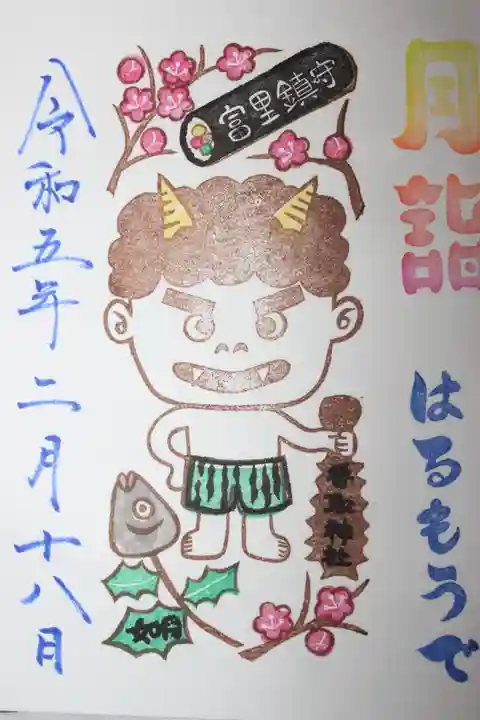 月詣
はるもうで
富里鎮守
香取神社
如月
令和五年二月十八日